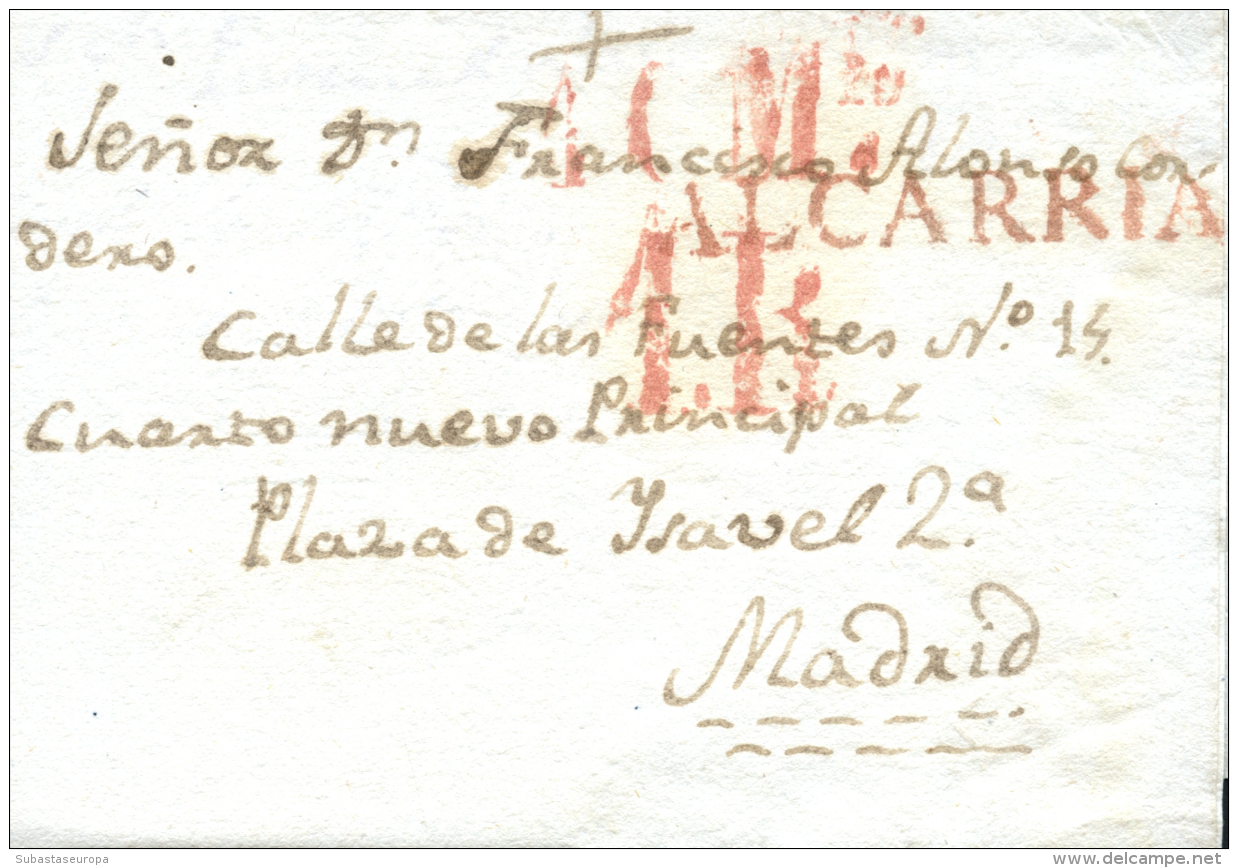 Señor Dn. Francisco Alonso Cor-
dero.
ALCARRIA
1.R.
Calle de las Fuentes No. 14.
Cuarto nuevo Principal
Plaza de Ysavel 2ª
Madrid
Subastaseuropa
www.delcampe.net